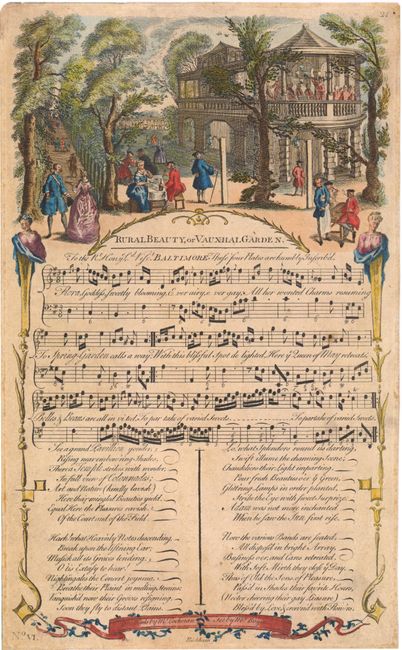 21
RURAL BEAUTY, or VAUXHAL GARDEN.
To the Rt. Hon.
BALTIMORE These four Plates are humbly Inscrib'd.
Flora, Goddess sweetly blooming, Ever airy, ever gay, All her wonted Charms resuming
To Spring-Garden calls away. With this blissful Spot delighted Here ye Queen of May retreats,
Belles & Beaus are all invited To partake of varied Sweets. To partake of varied Sweets.
See a grand Pavilion yonder,
Rising near embow'ring Shades,
There a Temple strikes with wonder,
In full view of Colonnades;
Art and Nature (kindly lavish)
Here their mingled Beauties yield
Equal Here the Pleasures ravish
Of the Court and of the Field.
Hark what Heav'nly Notes descending,
Break upon the list'ning Ear;
Musick all its Graces lending,
O 'tis Extasy to hear!
Nightingales the Concert joyning,
Breathe their Plaint in melting Strains:
Vanquish'd now their Groves resigning,
Soon they fly to distant Plains.
Lo, what Splendors round us darting,
Swift illume the charming Scene;
Chandeliers their Light imparting,
Pour fresh Beauties o'er ye Green.
Glitt'ring Lamps in order planted,
Strike the Eye with sweet Surprize.
Adam was not more enchanted
When he saw the Sun first rise.
Now the various Bands are seated,
All dispos'd in bright Array,
Business over and Cares retreated,
With soft Mirth they close ye Day.
Thus of Old the Sons of Pleasure
Pass'd in Shades their fav'rite Hours,
(Nectar chearing their gay Leisure)
Bless'd by Love
No. VI.
by Mr. Lockman
Set by Mr. Boyce